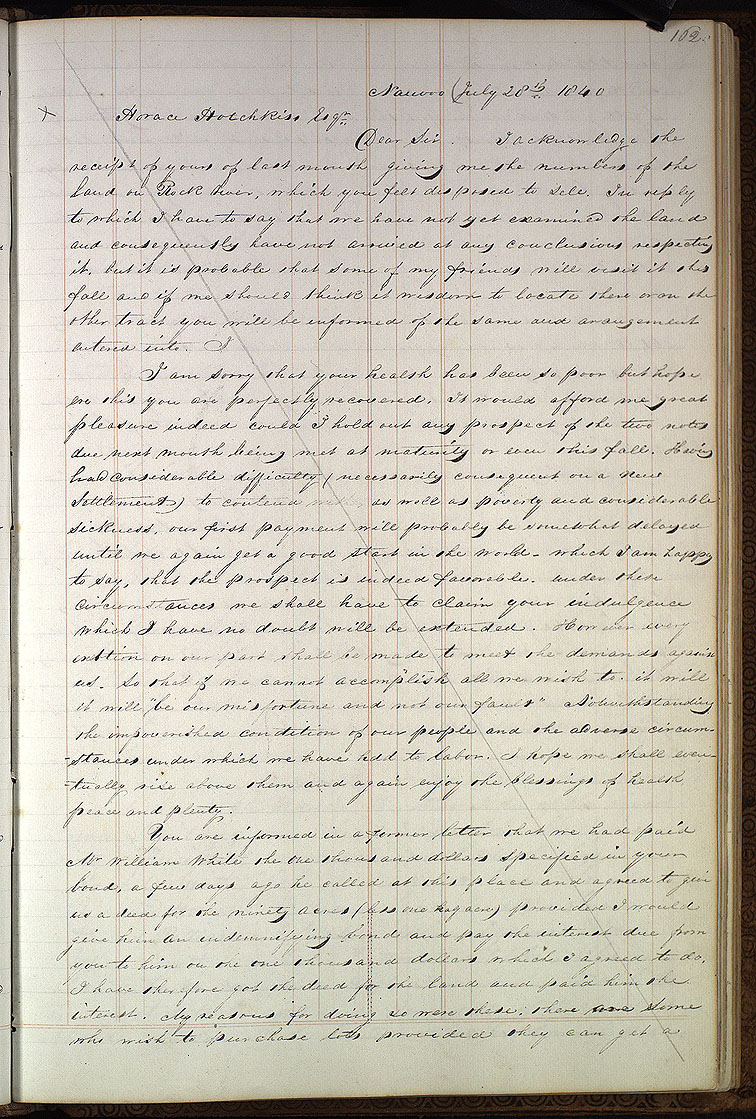 102.
Nauvoo July 28th 1840
X Horace Hotchkiss Esqr.
Dear Sir. I acknowledge the
receipt of yours of last month giving me the numbers of the
land on Rock river, which you felt disposed to sell. In reply
to which I have to say that we have not yet examined the land
and consequently have not arrived at any conclusions respecting
it. but it is probable that some of my friends will visit it this
fall and if we should think it wisdom to locate there or on the
other tract you will be informed of the same and arangement
entered into. I
I am sorry that your health has been so poor but hope
ere this you are perfectly recovered. It would afford me great
pleasure indeed could I hold out any prospect of the two notes
due next month being met at maturity or even this fall. Having
had considerable difficulty (necessarily consequent on a new
settlement) to contend with, as well as poverty and considerable
sickness, our first payment will probably be somewhat delayed
until we again get a good start in the world- which I am happy
to say, that the prospect is indeed favorable. under these
circumstances we shall have to claim your indulgence
which I have no doubt will be extended. However every
exertion on our part shall be made to meet the demands against
us. so that if we cannot accomplish all we wish to. it will
it will "be our misfortune and not our fault" Notwithstanding
the impoverished condition of our people and the adverse circum-
-stances under which we have had to labor. I hope we shall even-
-tually rise above them and again enjoy the blessings of health
peace and plenty.
You are informed in a former letter that we had paid
Mr William White the one thousand dollars specified in your
bond, a few days ago he called at this place and agreed to give
us a deed for the ninety acres (less one half acre) provided I would
give him an indemnifying bond and pay the interest due from
you to him on the one thousand dollars which I agreed to do.
I have therefore got the deed for the land and paid him the
interest. My reasons for doing so were these. there are some
who wish to purchase lots provided they can get a